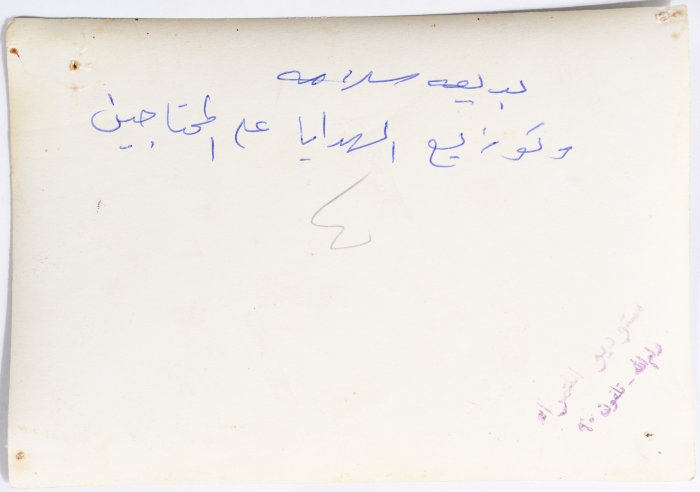 بديعه سلامه
وتوزيع الهدايا على المحتاجين
٤
ستوديو
رام الله - تلفون